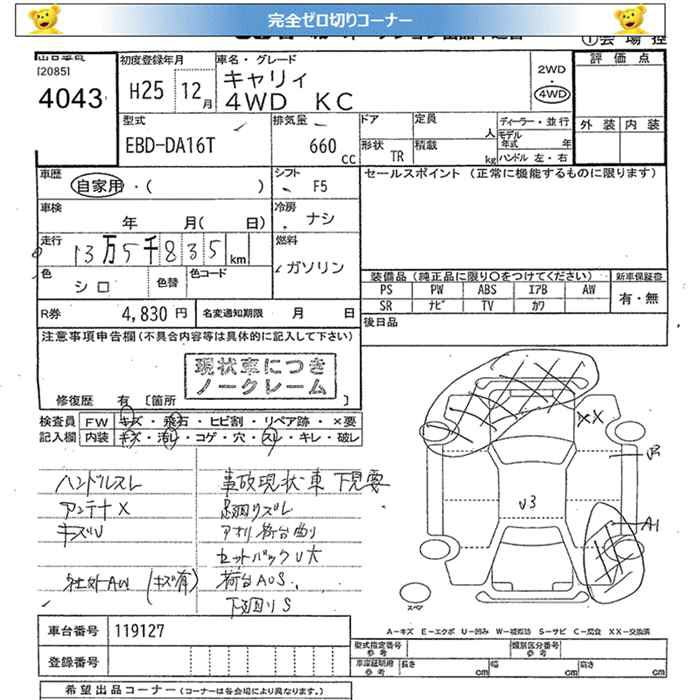 完全ゼロ切りコーナー
[2085]
4043
初度登録年月
H25 12月
車名・グレード
キャリィ
4WD KC
2WD
・
4WD
評価点
外装 内装
型式
EBD-DA16T
排気量
660 cc
ドア
定員
人
形状 TR
積載
kg
ディーラー・並行
モデル年式 年
ハンドル 左・右
車歴
自家用・( )
シフト
F5
セールスポイント (正常に機能するものに限ります)
車検
年 月( 日)
冷房
ナシ
走行
13万5千835km
燃料
ガソリン
色
シロ
色替
色コード
装備品(純正品に限り○をつけてください)
新車保証書
PS PW ABS エアB AW
SR ナビ TV カワ
有・無
R券 4,830円
名変通知期限 月 日
後日品
注意事項申告欄(不具合内容等は具体的に記入して下さい)
現状車につき
ノークレーム
修復歴 有 [箇所 ]
検査員 FW キズ・飛石・ヒビ割・リペア跡・×要
記入欄 内装 キズ・汚レ・コゲ・穴・スレ・キレ・破レ
ハンドルスレ
アンテナX
キズU
社外AW (キズ有)
事故現状車 下見要
足廻りズレ
アオリ荷台曲り
セットバックU大
荷台AUS.
下廻りS
XX
U3
A1
スペア
A－キズ E－エクボ U－凹み W－補修跡 S－サビ C－腐食 XX－交換済
車台番号 119127
登録番号
型式指定番号
参考
類別区分番号
参考
車庫証明用
参考
長さ cm 幅 cm 高さ cm
希望出品コーナー(コーナーは各会場により異なります。)